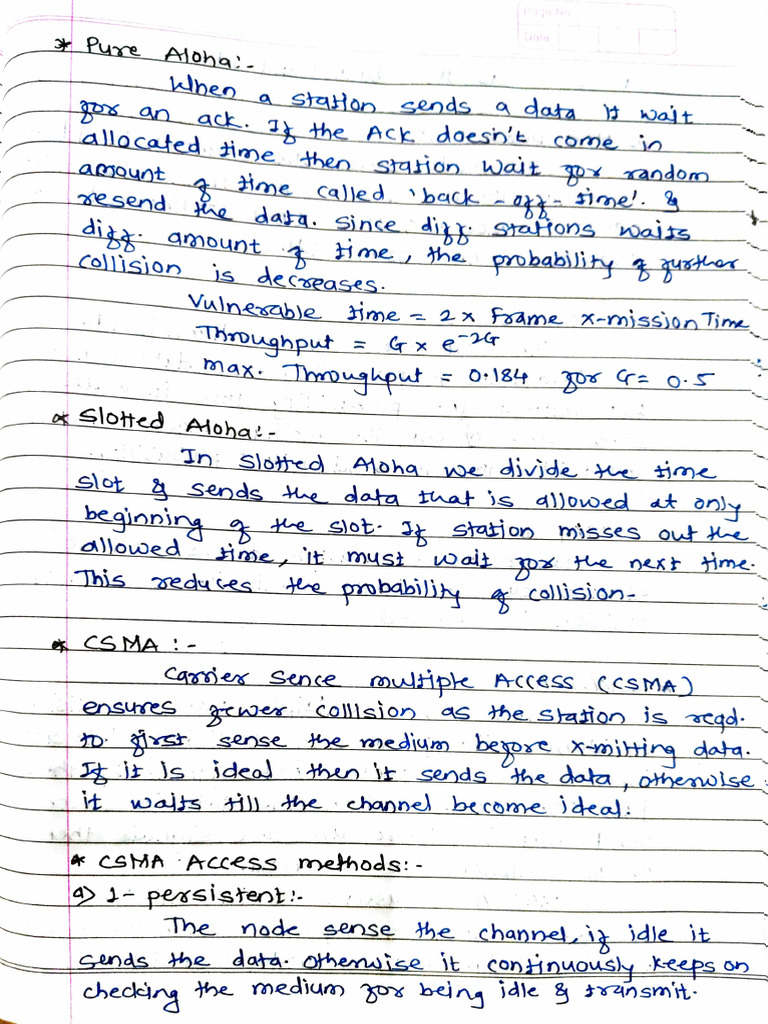 Page No.
Date
* Pure Aloha:-
When a station sends a data it wait
for an ack. If the Ack doesn't come in
allocated time then station wait for random
amount of time called 'back-off-time'. &
resend the data. since diff. stations waits
diff. amount of time, the probability of further
collision is decreases.
Vulnerable time = 2 x Frame x-mission Time
Throughput = G x e^-2G
max. Throughput = 0.184 for G = 0.5
* Slotted Aloha:-
In slotted Aloha we divide the time
slot & sends the data that is allowed at only
beginning of the slot. If station misses out the
allowed time, it must wait for the next time.
This reduces the probability of collision-
* CSMA :-
Carrier Sence multiple Access (CSMA)
ensures fewer collision as the station is reqd.
to first sense the medium before x-mitting data.
If it is ideal then it sends the data, otherwise
it waits till the channel become ideal.
* CSMA Access methods:-
a) 1- persistent:-
The node sense the channel, if idle it
sends the data. otherwise it continuously keeps on
checking the medium for being idle & transmit.